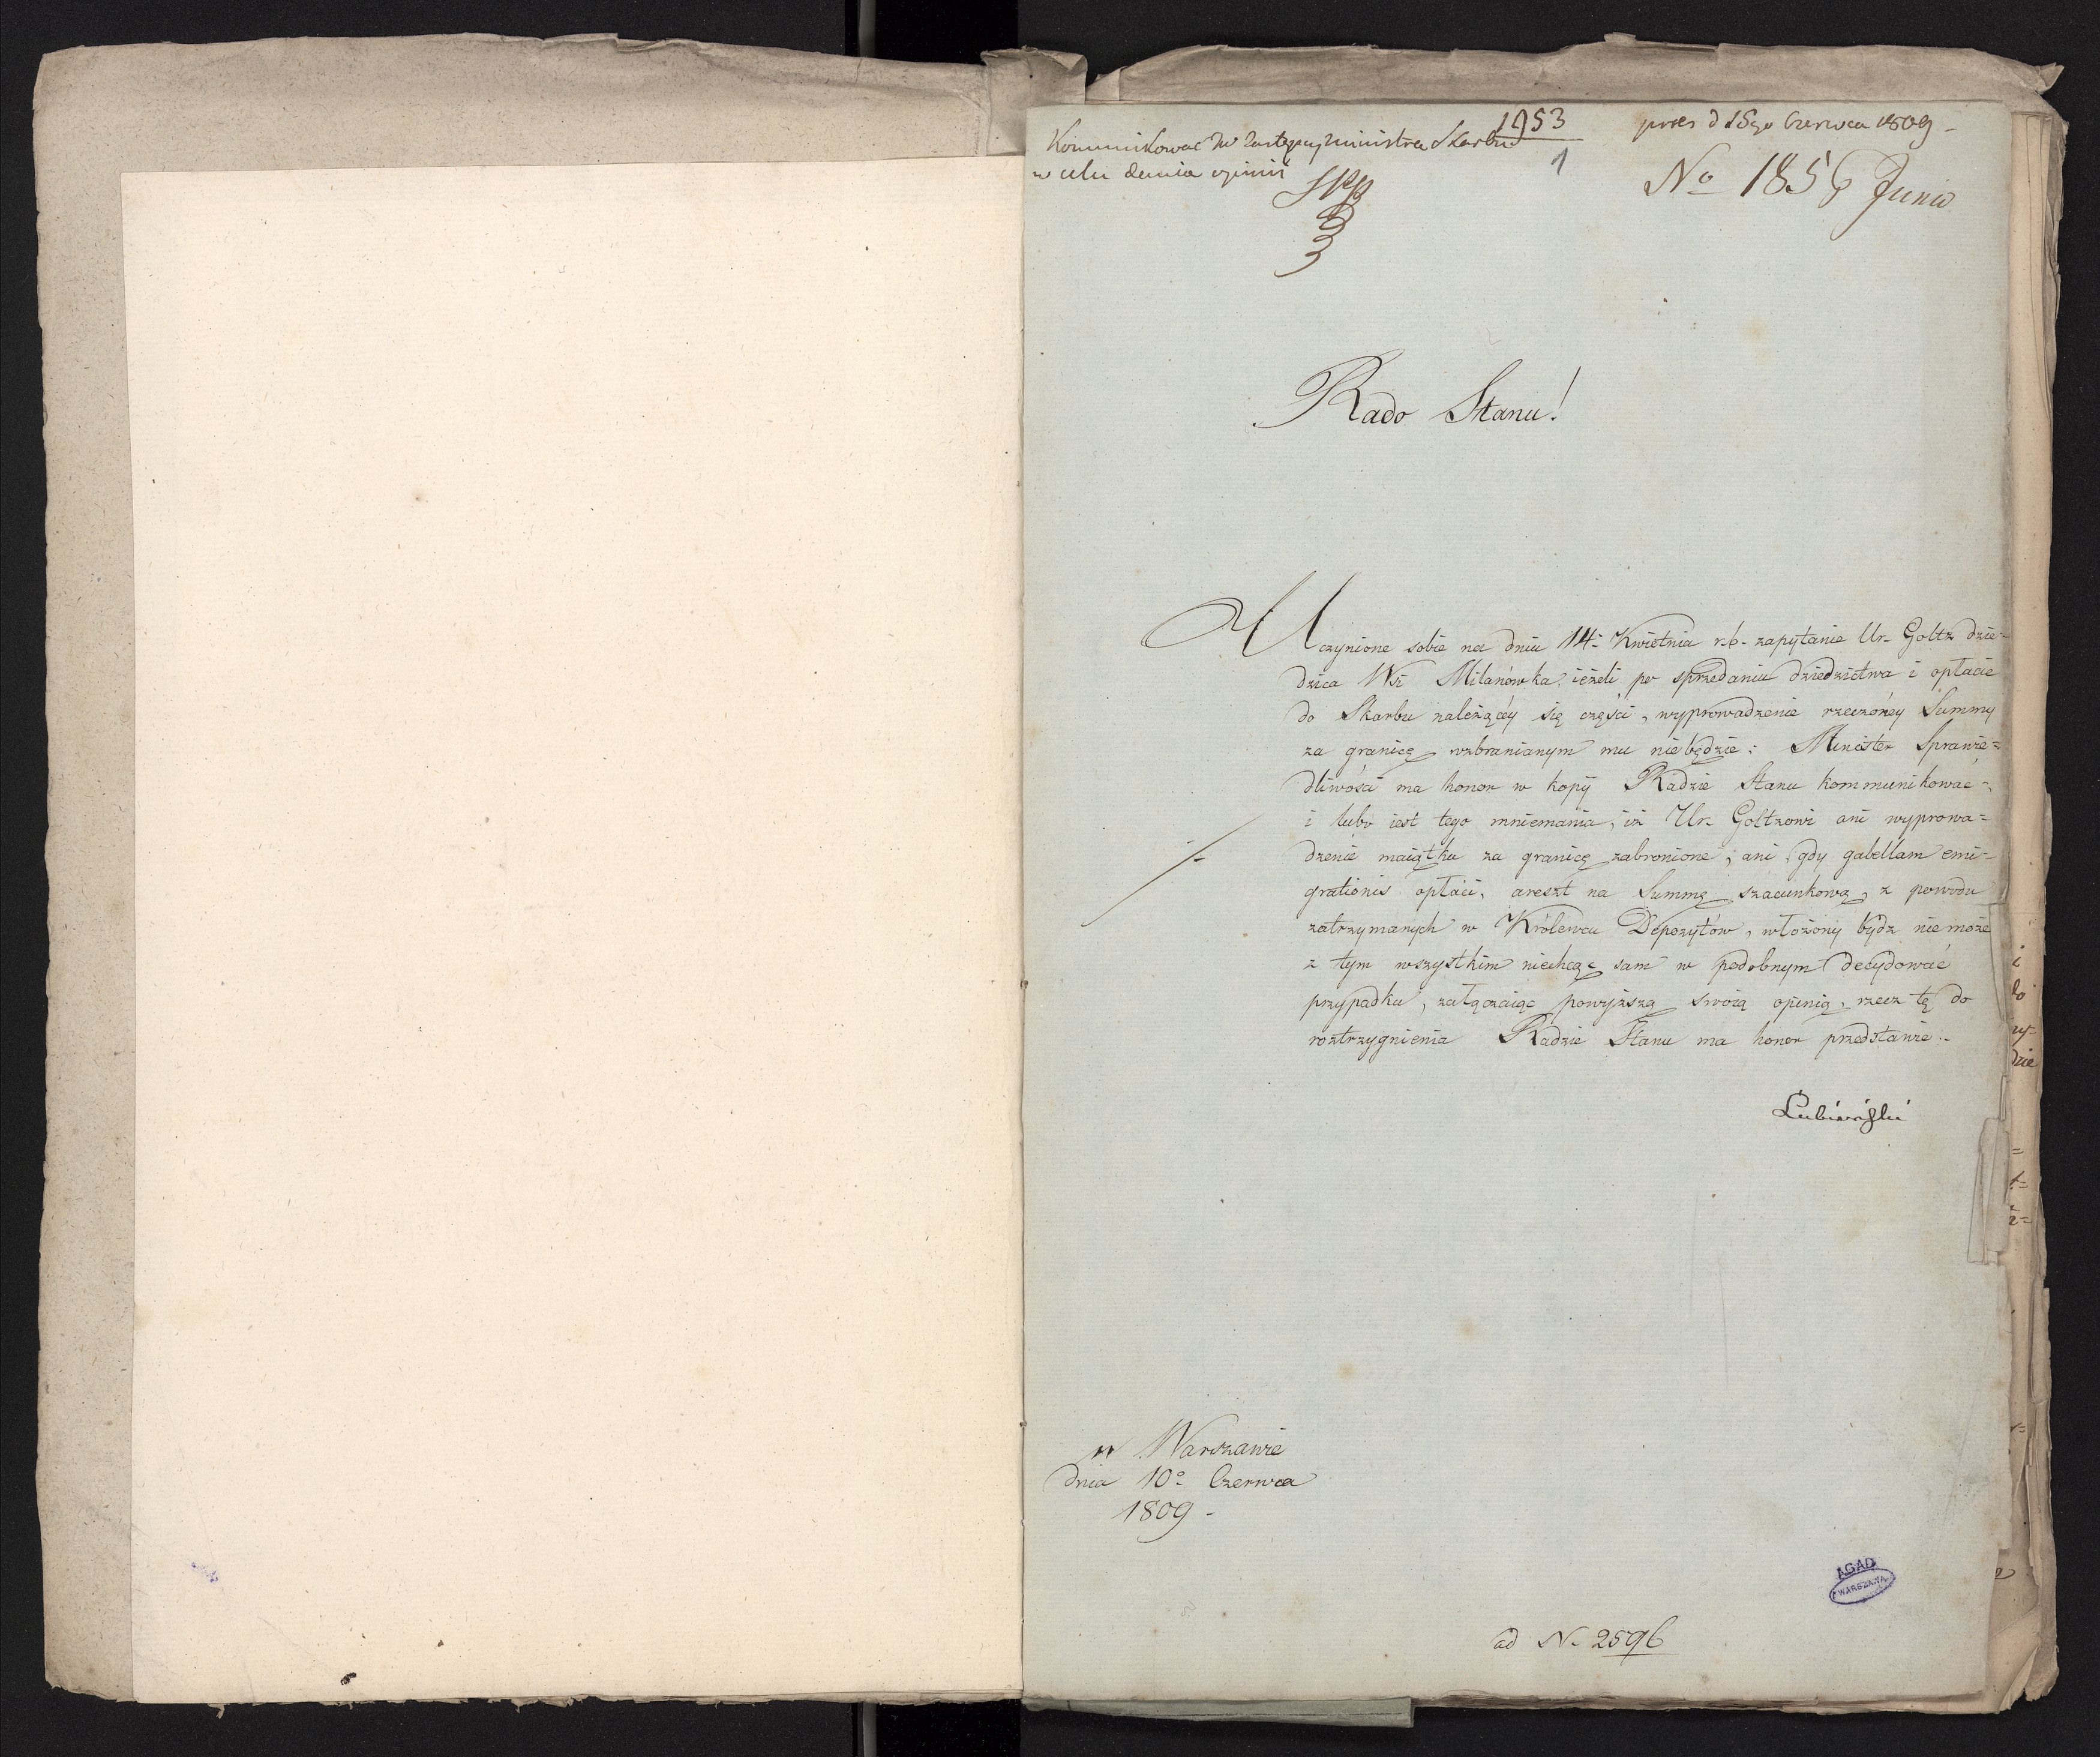 1953
1
pres d 15go Czerwca 1809 -
Kommunikować JW Zastępcy Ministra Skarbu
w celu dania opinii
No 1856 Junio
Rado Stanu!
Uczynione sobie na dniu 14. Kwietnia r. b. zapytanie Ur. Goltz dzie=
dzica Wsi Milanówka, ieżeli po sprzedaniu dziedzictwa i opłacie
do Skarbu należącéy się części, wyprowadzenie rzeczonéy Summy
za granicę wzbranianym mu niebędzie: Minister Sprawie=
dliwości ma honor w kopij Radzie Stanu kommunikować,
i lubo iest tego mniemania, iż Ur. Goltzowi ani wyprowa=
dzenie maiątku za granicę zabronione, ani gdy gabellam emi=
grationis opłaci, areszt na Summę szacunkową, z powodu
zatrzymanych w Królewcu Depozytów, włożony bydz nie może
z tym wszystkim niechcąc sam w podobnym decydować
przypadku, załączaiąc powyższą swoią opinią, rzecz tę do
roztrzygnienia Radzie Stanu ma honor przedstawić.
Lubieński
w Warszawie
dnia 10o Czerwca
1809 -
AGAD
WARSZAWA
ad N. 2596